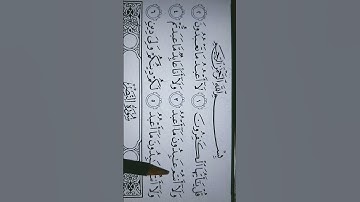 بِسْمِ اللَّهِ الرَّحْمَٰنِ الرَّحِيمِ
قُلْ يَٰٓأَيُّهَا ٱلْكَٰفِرُونَ ١ لَآ أَعْبُدُ مَا تَعْبُدُونَ ٢
وَلَآ أَنتُمْ عَٰبِدُونَ مَآ أَعْبُدُ ٣ وَلَآ أَنَا۠ عَابِدٌ مَّا عَبَدتُّمْ ٤
وَلَآ أَنتُمْ عَٰبِدُونَ مَآ أَعْبُدُ ٥ لَكُمْ دِينُكُمْ وَلِيَ دِينِ ٦
سُورَةُ النَّصْرِ